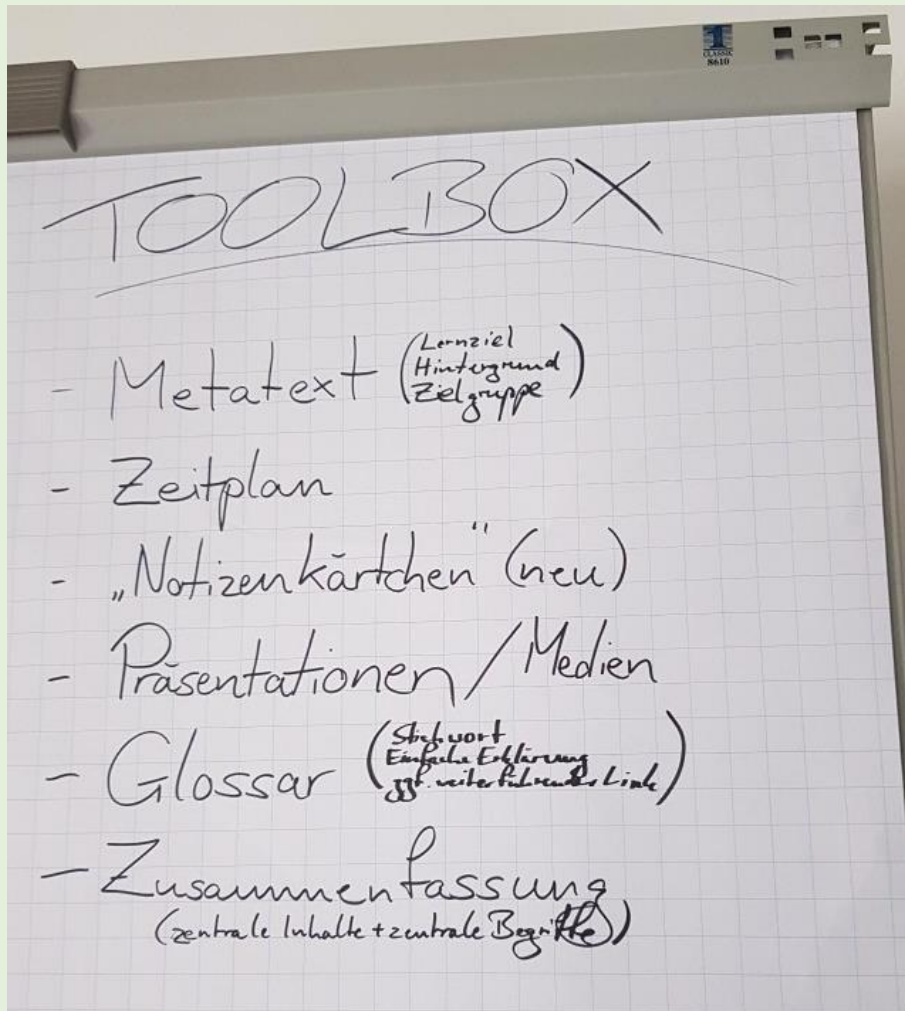 1
CLASSIC
8610
TOOLBOX
- Metatext (Lernziel
Hintergrund
Zielgruppe)
- Zeitplan
- „Notizenkärtchen" (neu)
- Präsentationen / Medien
- Glossar (Stichwort
Einfache Erklärung
ggf. weiterführender Link)
- Zusammenfassung
(zentrale Inhalte + zentrale Begriffe)